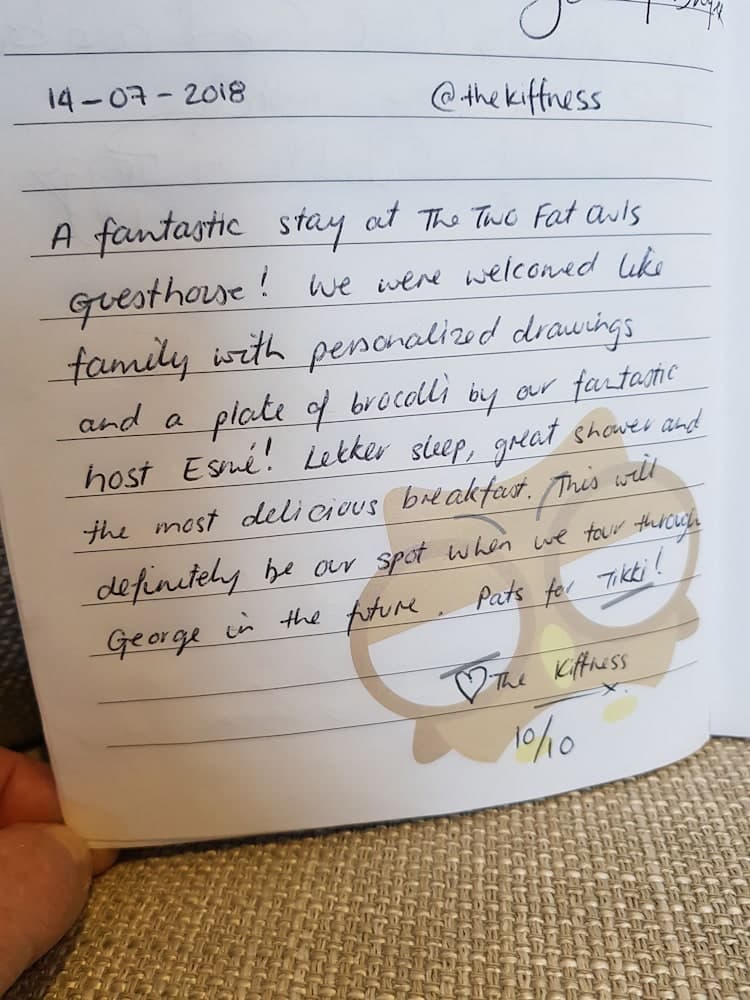 14-07-2018 @thekiffness
A fantastic stay at The Two Fat Owls
Guesthouse! We were welcomed like
family with personalized drawings
and a plate of brocolli by our fantastic
host Esmé! Lekker sleep, great shower and
the most delicious breakfast. This will
definitely be our spot when we tour through
George in the future. Pats for Tikki!
♡ The Kiffness
x.
10/10